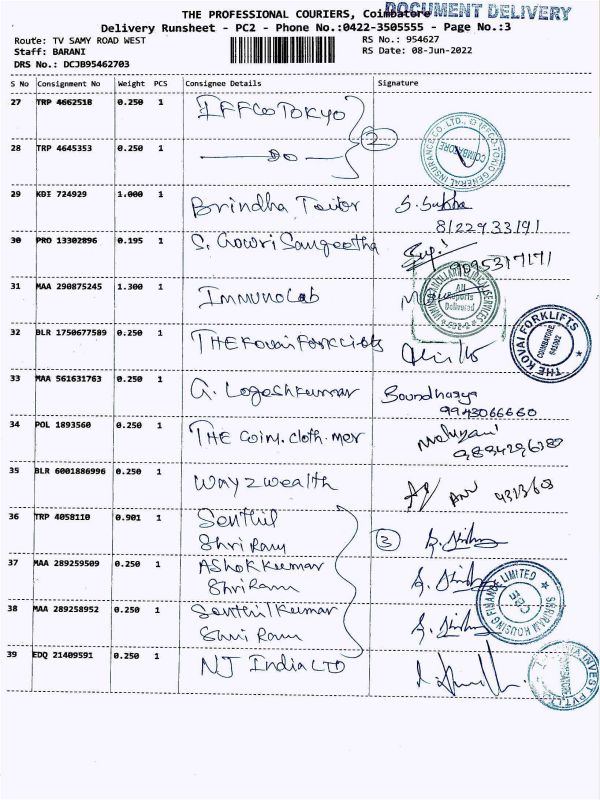 THE PROFESSIONAL COURIERS, Coimbatore
DOCUMENT DELIVERY
Delivery Runsheet - PC2 - Phone No.:0422-3505555 - Page No.:3
Route: TV SAMY ROAD WEST
RS No.: 954627
Staff: BARANI
RS Date: 08-Jun-2022
DRS No.: DCJB95462703
S No Consignment No Weight PCS Consignee Details Signature
27 TRP 4662518 0.250 1 IFFCO TOKYO
28 TRP 4645353 0.250 1 —Do—
2
COIMBATORE
29 KDI 724929 1.000 1 Brindha Tailor S. Sukha
8122933191
30 PRO 13302896 0.195 1 S. Gowri Sangeetha
9095317171
31 MAA 290875245 1.300 1 Immunolab
All Reports Delivered
32 BLR 1750677589 0.250 1 THE Kovai Forklifts
THE KOVAI FORKLIFTS
COIMBATORE
33 MAA 561631763 0.250 1 G. Logeshkumar Boundharya
9943066660
34 POL 1893560 0.250 1 THE Coim. cloth. mer
35 BLR 6001886996 0.250 1 Way2wealth
36 TRP 4058110 0.901 1 Senthil
Shri Ram
3
37 MAA 289259509 0.250 1 Ashokkumar
Shri Ram
38 MAA 289258952 0.250 1 Senthilkumar
Shri Ram
SHRIRAM HOUSING FINANCE LIMITED
CBE
39 EDQ 21409591 0.250 1 NJ India LTD